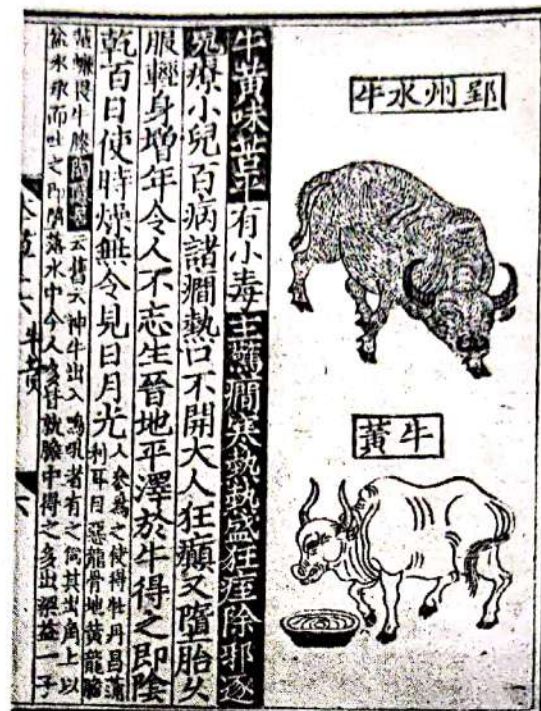 郢州水牛
牛黃
牛黃味苦平有小毒主驚癇寒熱熱盛狂痓除邪逐
鬼療小兒百病諸癇熱口不開大人狂癲又墮胎久
服輕身增年令人不忘生晉地平澤於牛得之即陰
乾百日使時燥無令見日月光
人參為之使得牡丹昌蒲
利耳目惡龍骨地黃龍膽
蜚蠊畏牛膝陶隱居云舊云神牛出入鳴吼者有之伺其出角上以
盆水承而吐之即墮落水中今人多皆就膽中得之多出梁益一子
牛黃